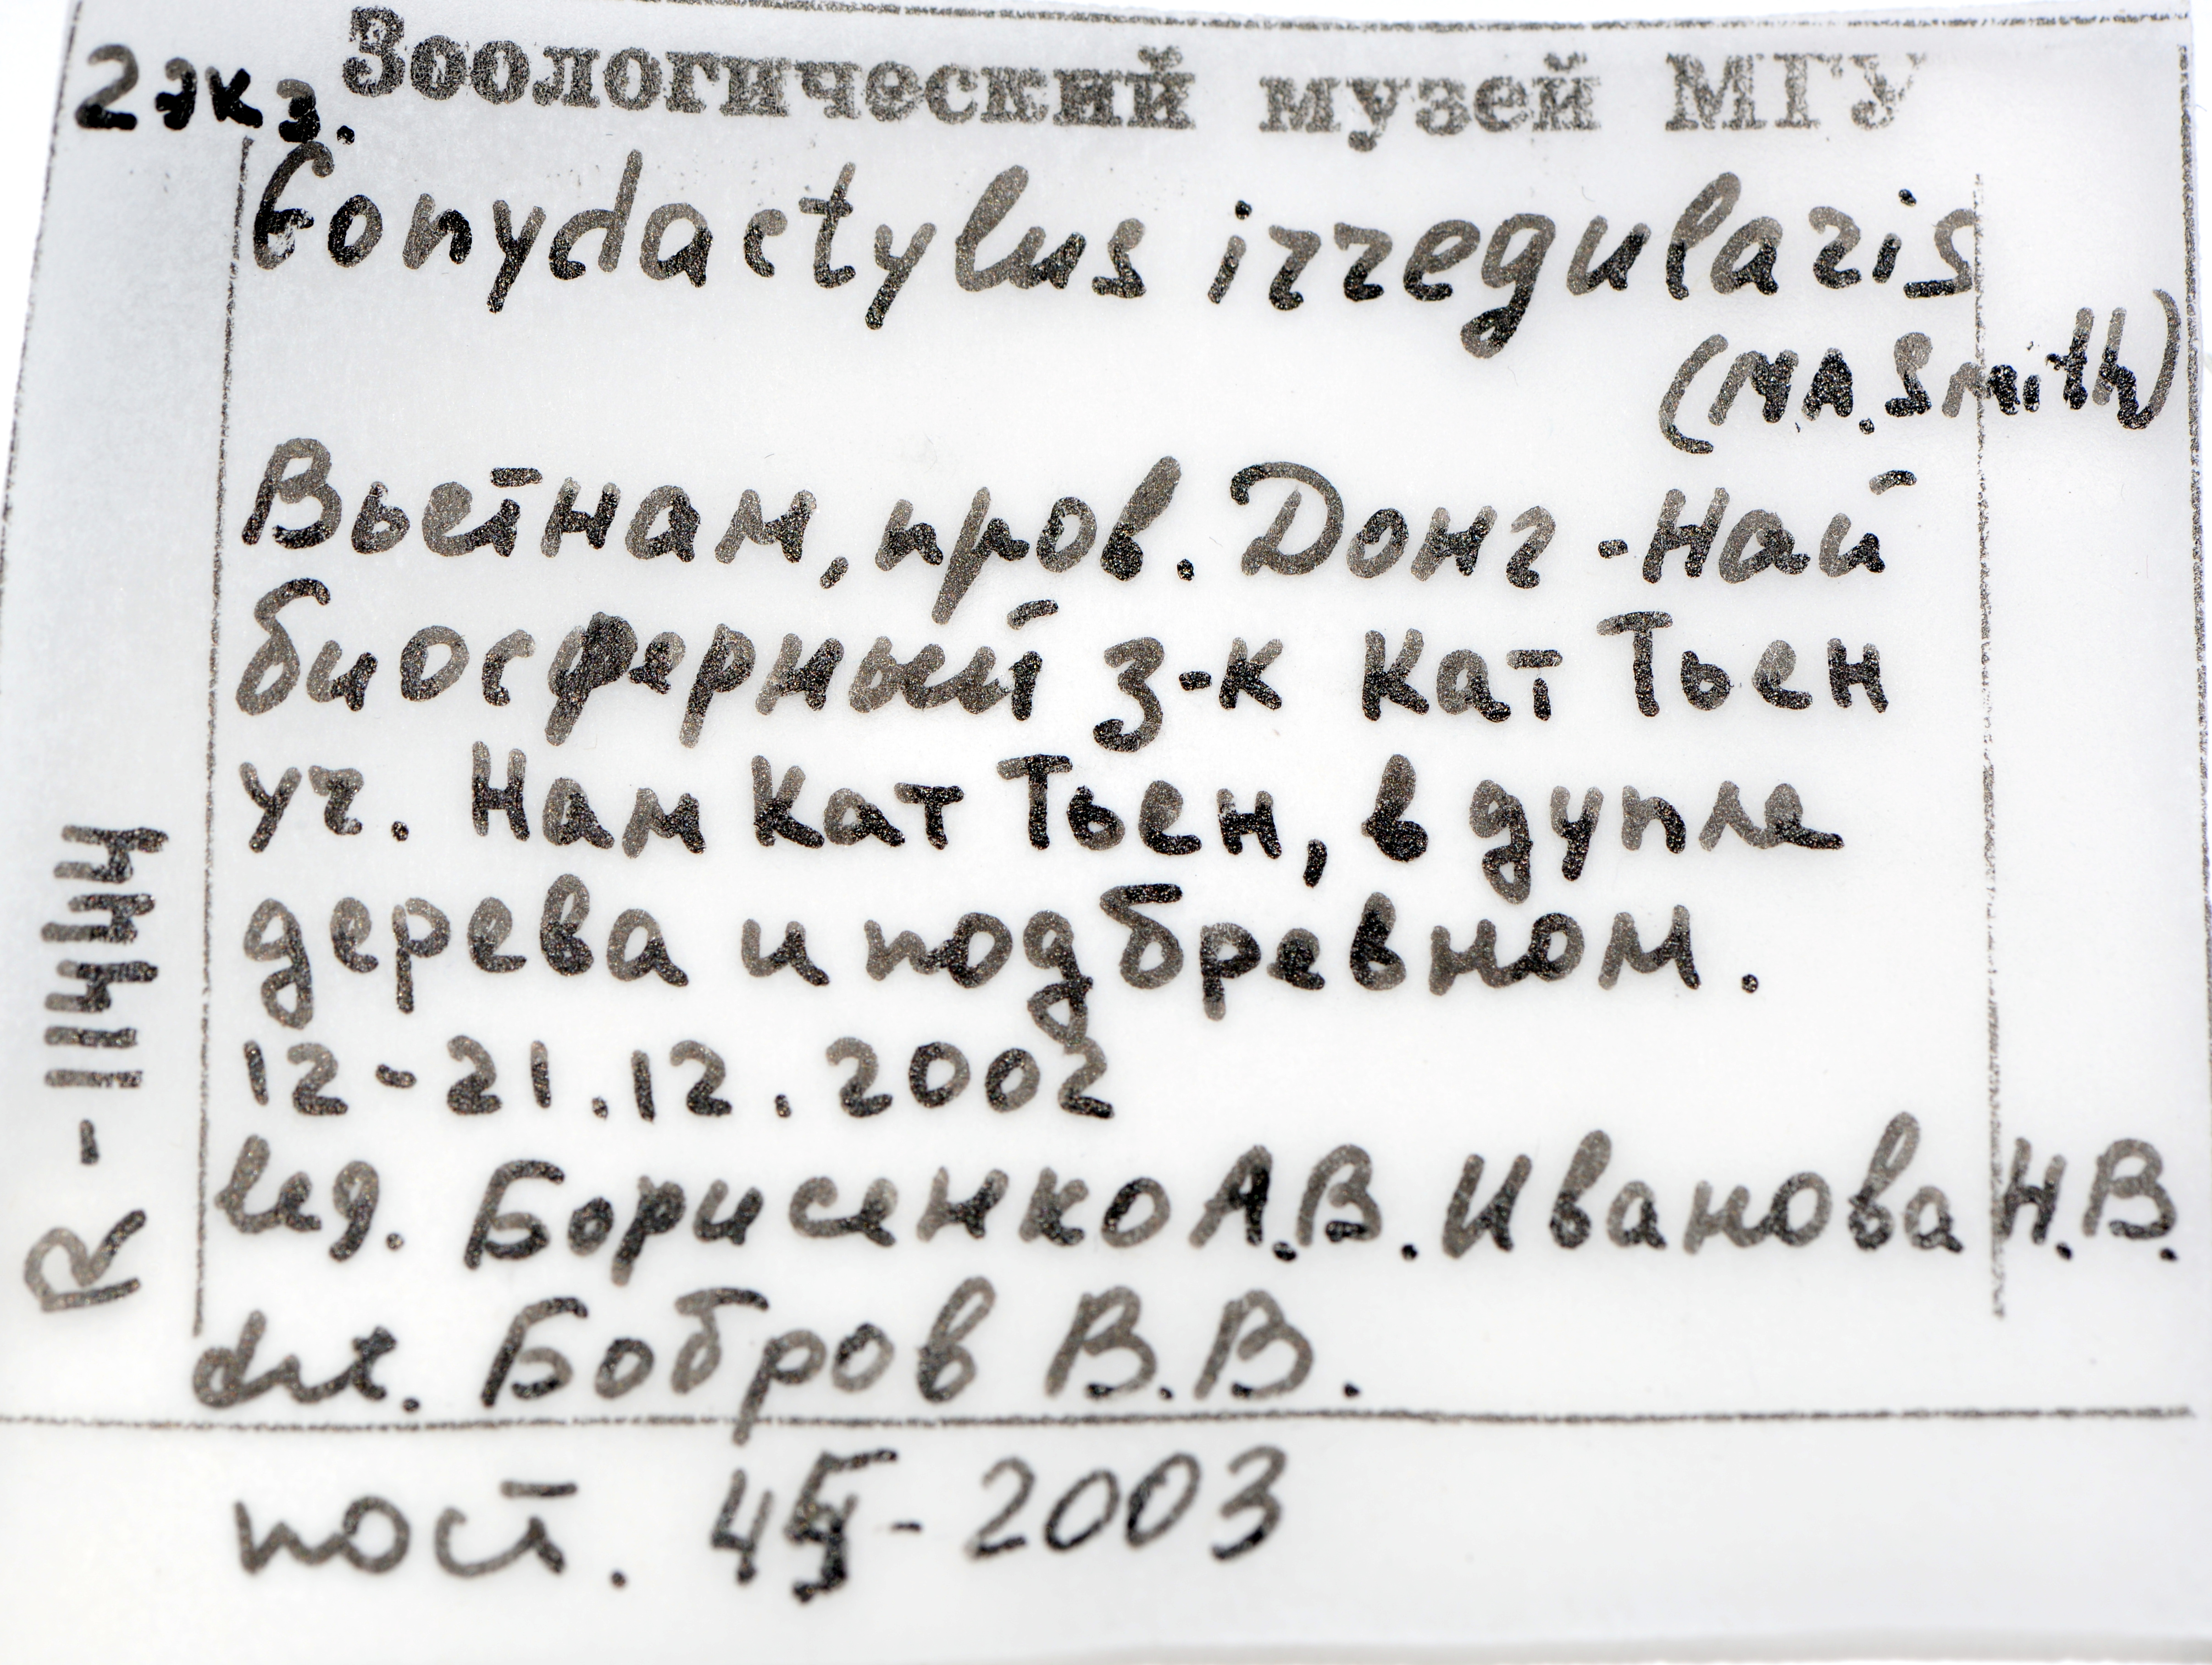 Зоологический музей МГУ
2 экз.
Gonydactylus irregularis
(M.A. Smith)
Вьетнам, пров. Донг-Най
биосферный з-к Кат Тьен
уч. Нам Кат Тьен, в дупле
дерева и под бревном.
12-21.12.2002
leg. Борисенко А.В. Иванова Н.В.
det. Бобров В.В.
пост. - 2003
R-11444